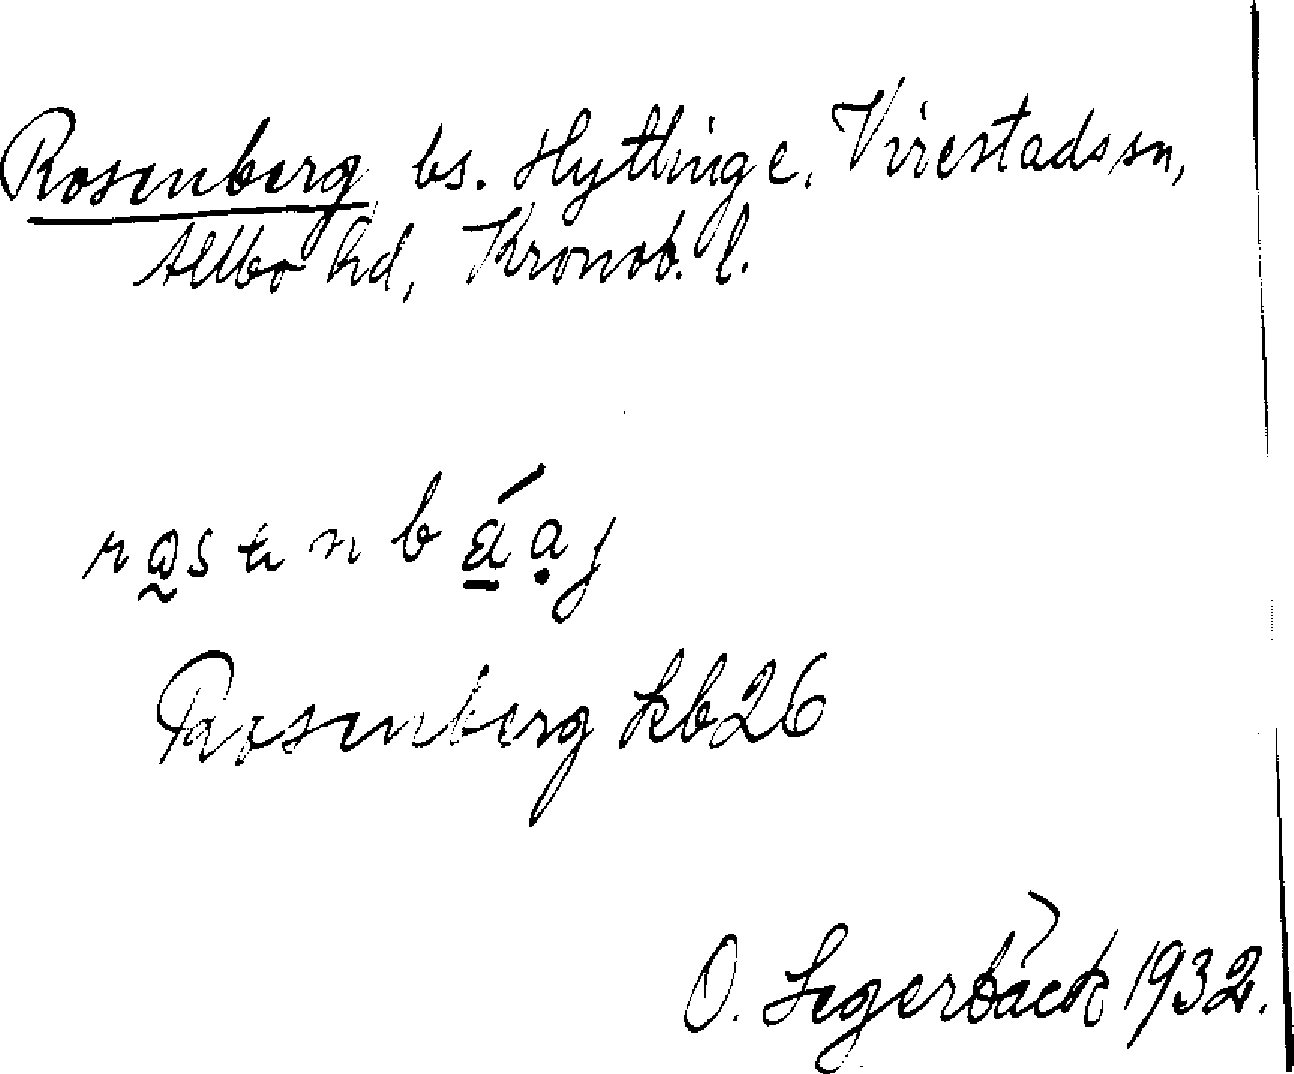 Rosenberg bs. Hyttinge, Virestads sn,
Allbo hd, Kronob. l.
Rosenberg kb 26
O. Segerbäck 1932.